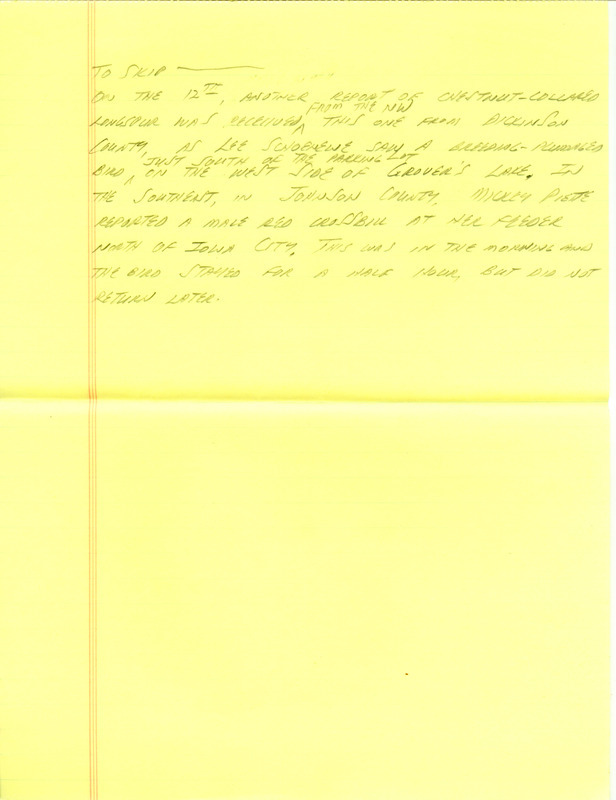 TO SKIP
ON THE 12TH, ANOTHER REPORT OF CHESTNUT-COLLARED
LONGSPUR WAS RECEIVED FROM THE NW, THIS ONE FROM DICKINSON
COUNTY, AS LEE SCHOENEWE SAW A BREEDING-PLUMAGED
BIRD JUST SOUTH OF THE PARKING LOT, ON THE WEST SIDE OF GROVER'S LAKE. IN
THE SOUTHEAST, IN JOHNSON COUNTY, MICKEY PIETE
REPORTED A MALE RED CROSSBILL AT HER FEEDER
NORTH OF IOWA CITY. THIS WAS IN THE MORNING AND
THE BIRD STAYED FOR A HALF HOUR, BUT DID NOT
RETURN LATER.